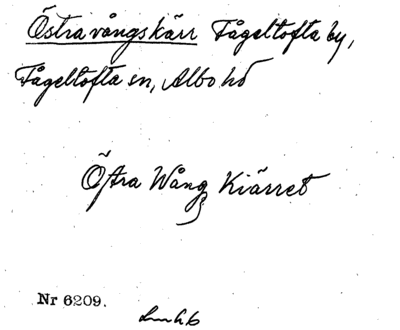 Östra vångskärr Fågeltofta by,
Fågeltofta sn, Albo hd
Öftra Wångs Kiärret
Nr 6209.